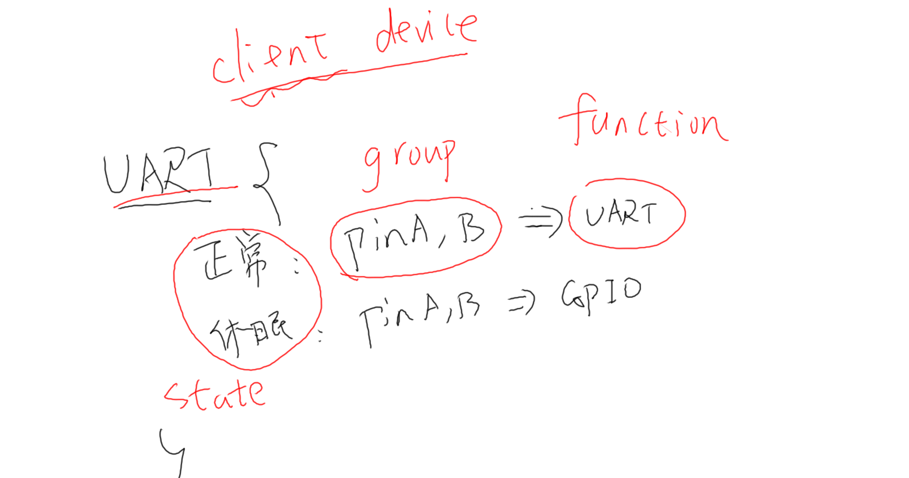 client device
function
UART { group
正常: pinA, B ⇒ UART
休眠: pinA, B ⇒ GPIO
state
}